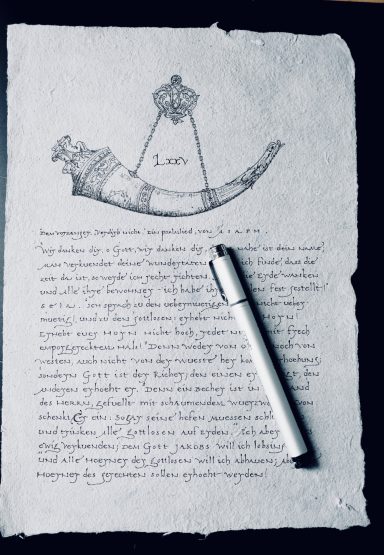 LXXV
Dem vorsænger. Verdirb nicht. Ein psalmlied, von ASAPH.
Wir danken dir, o Gott, wir danken dir, nahe ist dein name,
man verkuendet deine wundertaten ich finde, dass die
zeit da ist, so werde ich recht richten. Erde wanken
und alle ihre bewohner - ich habe ihre fest gestellt!
SELA. Ich sprach zu den uebermuetigen: nicht ueber
muetig! und zu den gottlosen: erhebt nicht HORN!
Erhebt euer HORN nicht hoch, redet nicht mit frech
emporgerecktem HALS! Denn weder von noch von
westen, auch nicht von der wueste her erhoehung;
sondern Gott ist der Richter; den einen den
anderen erhoeht er. Denn ein Becher ist in
des HERRN, gefuellt mit schaeumendem wuerzwein
schenkt er ein: sogar seine hefen muessen
und trinken alle gottlosen auf Erden. Ich aber
ewig verkuenden; dem Gott JAKOBS will ich lobsingen
Und alle Hoerner der gottlosen will ich abhauen; aber
Hoerner des gerechten sollen erhoeht werden!